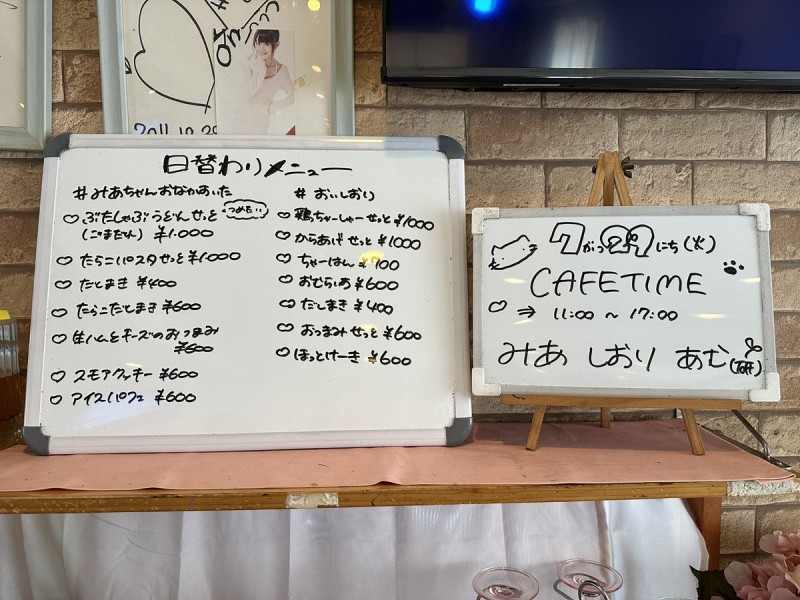 2011.10.29
日替わりメニュー
#みあちゃんおなかあいた
ぶたしゃぶうどんせっと つめたい
(ごまだれ) ¥1.000
たらこパスタせっと ¥1000
だしまき ¥400
たらこだしまき ¥600
生ハムとチーズのおつまみ
¥600
スモアクッキー ¥600
アイスパフェ ¥600
#おいしおり
鶏ちゃーしゅーせっと ¥1000
からあげせっと ¥1000
ちゃーはん ¥700
おむらいす ¥600
だしまき ¥400
おつまみせっと ¥600
ほっとけーき ¥600
7がつ29にち(火)
CAFETIME
⇒ 11:00 ~ 17:00
みあ しおり あむ(研)